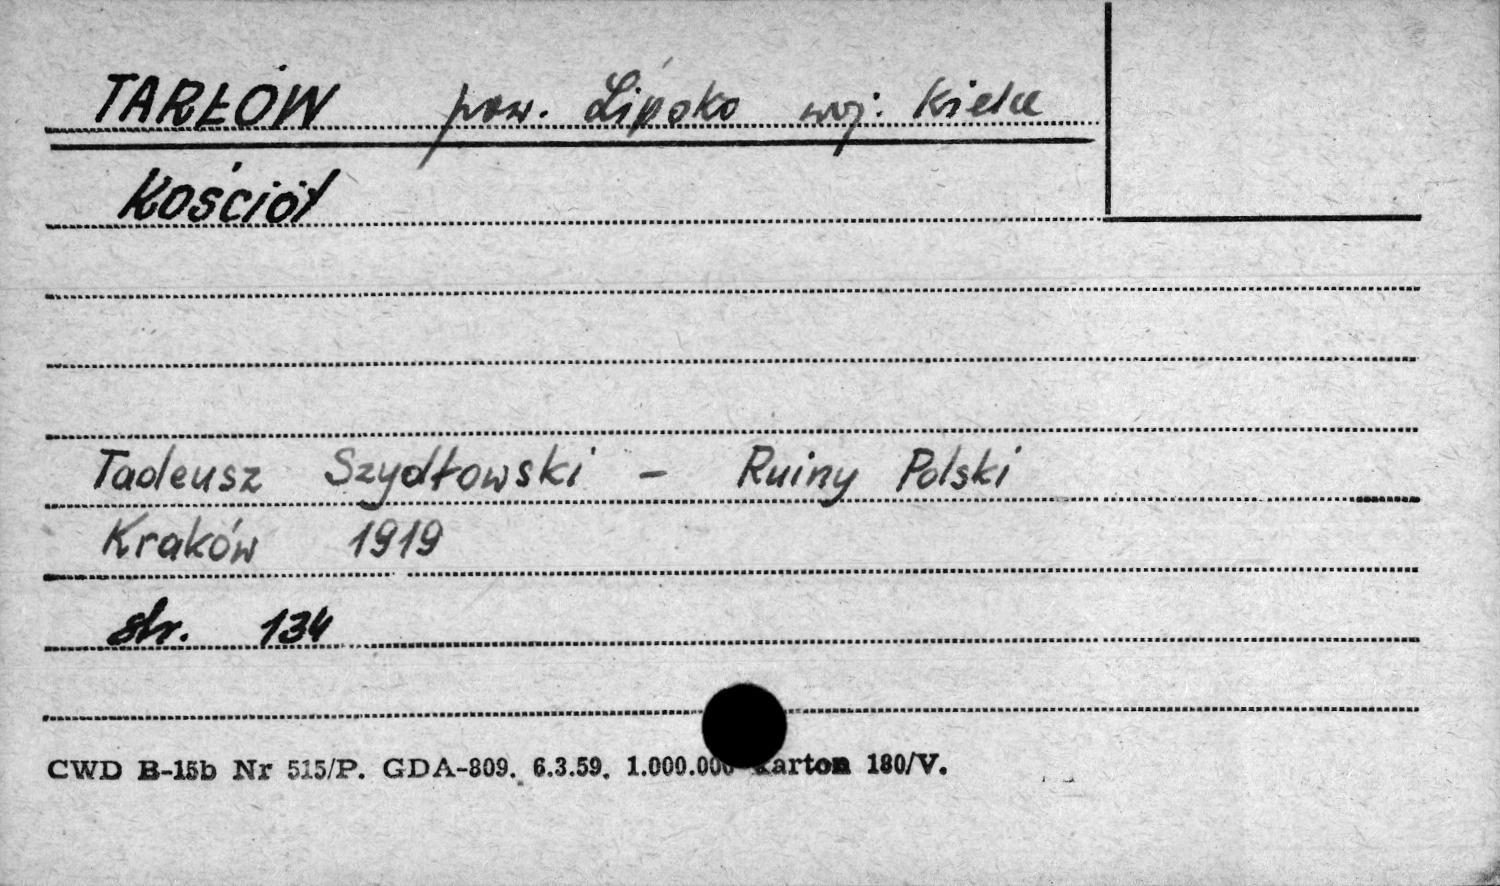 TARŁÓW pow. Lipsko woj. Kielce
Kościół
Tadeusz Szydłowski - Ruiny Polski
Kraków 1919
str. 134
CWD B-15b Nr 515/P. GDA-809. 6.3.59. 1.000.000 Karton 180/V.